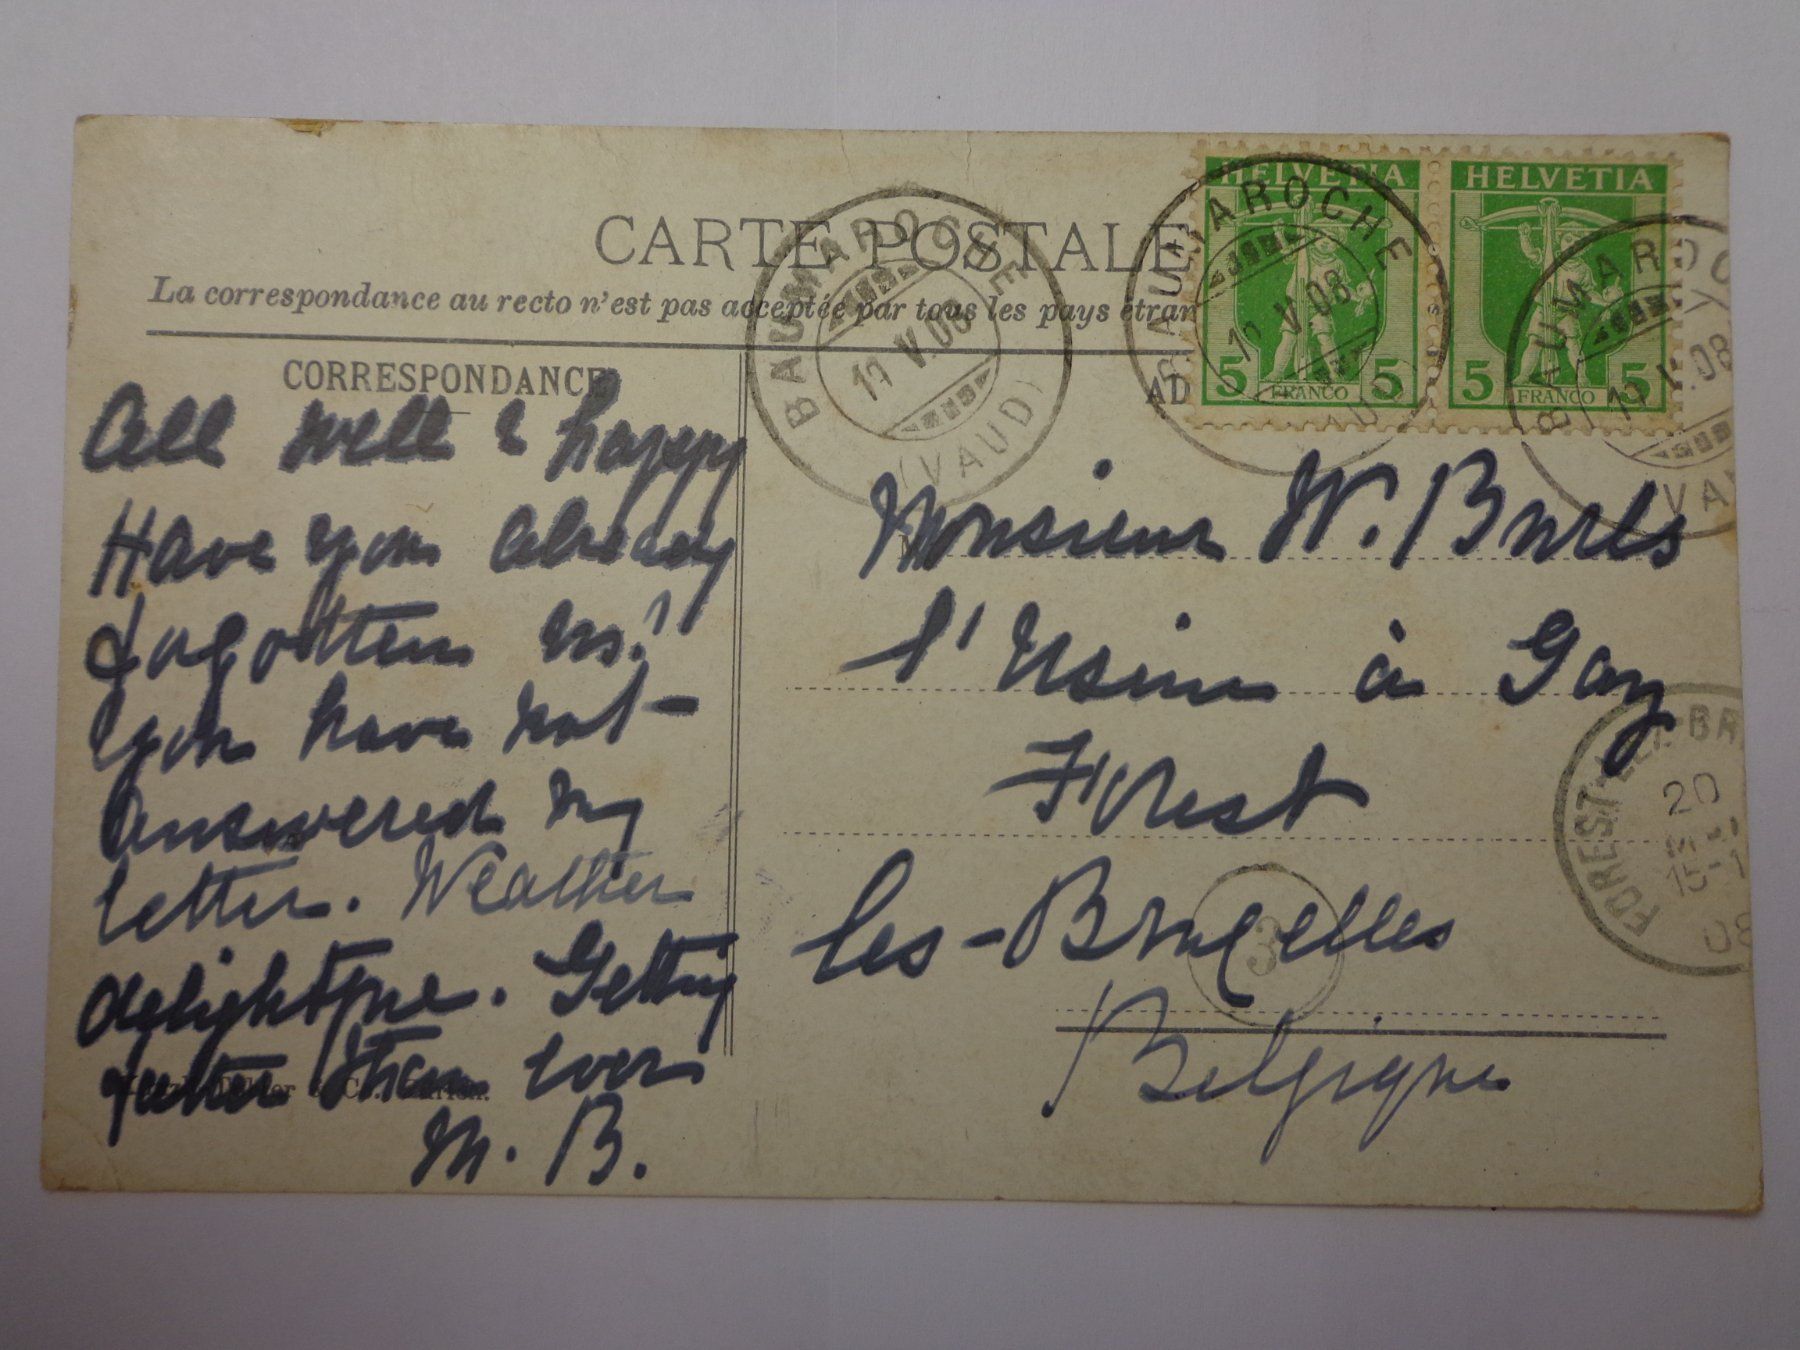 CARTE POSTALE
La correspondance au recto n'est pas acceptée par tous les pays étran
CORRESPONDANCE
AD
All well & happy
Have you already
forgotten us!
you have not-
answered my
letter. Weather
delightful. Getting
fatter than ever
M. B.
HELVETIA
5 FRANCO 5
HELVETIA
5 FRANCO 5
BAUMAROCHE
V.08
(VAUD)
BAUMAROCHE
V.08
BAUMAROC
V.08
Monsieur W. Burls
l'Usine à Gaz
Forest
les-Bruxelles
Belgique
3
FOREST
20
15-1
08